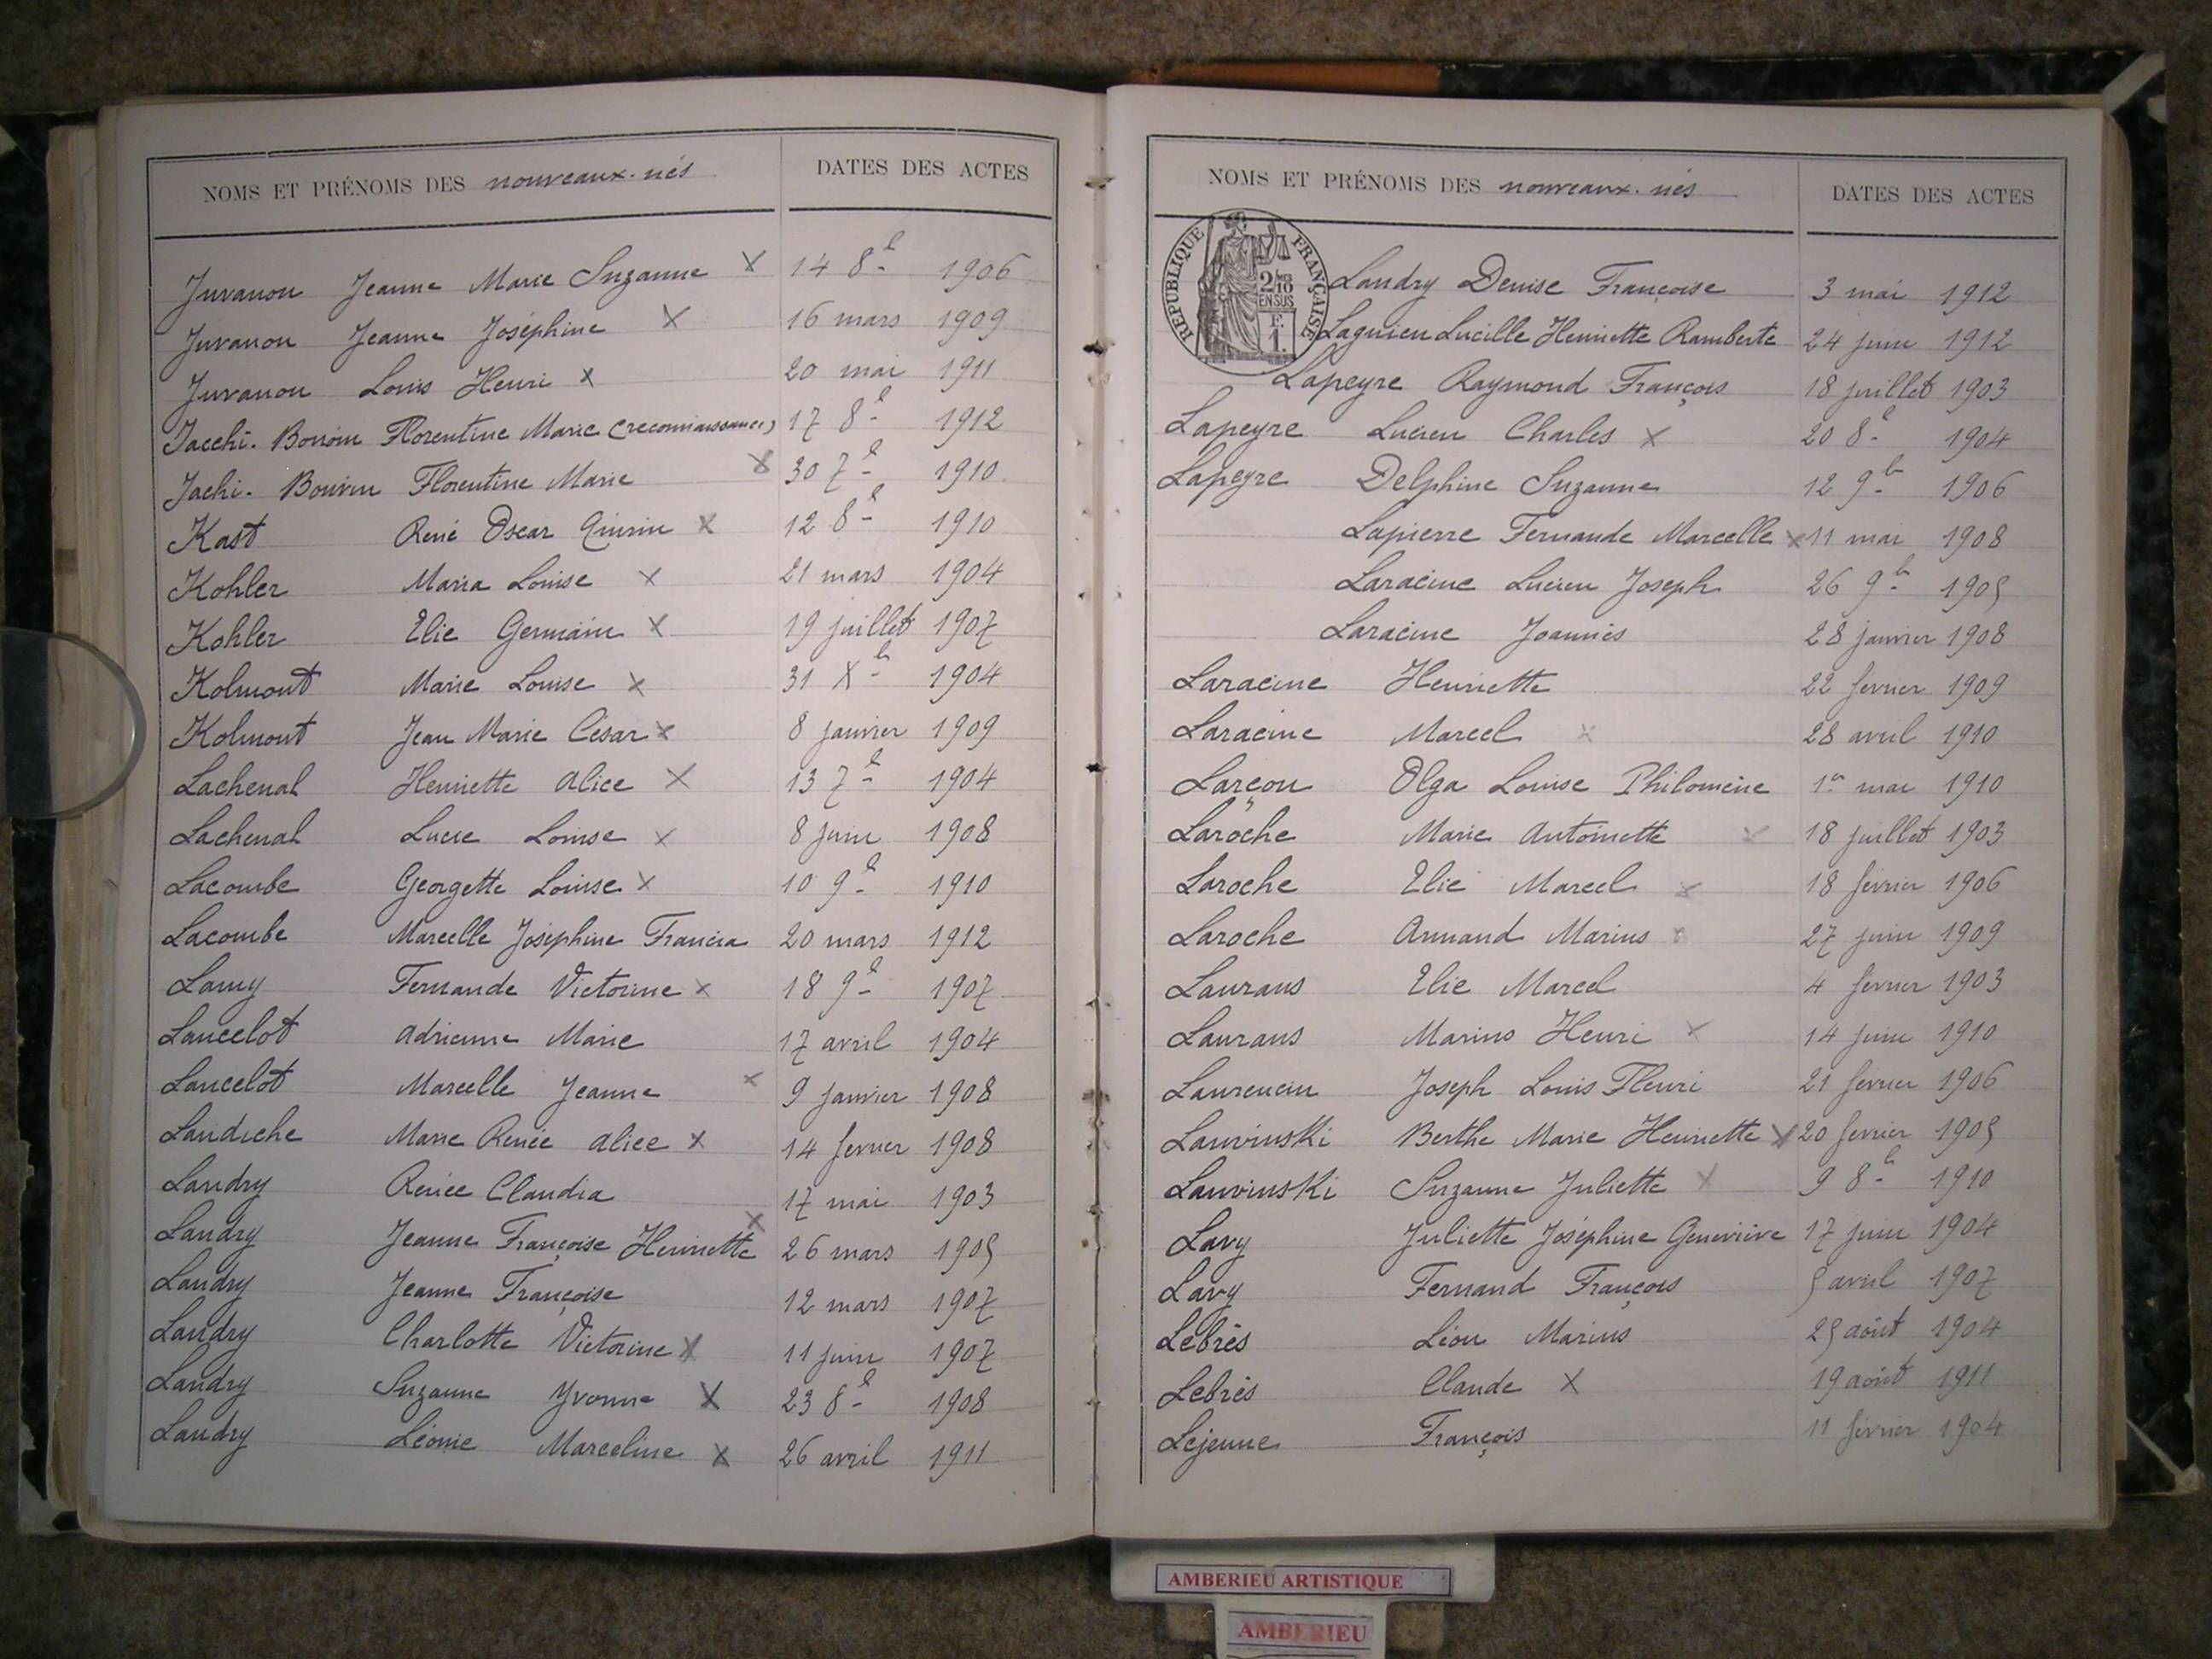 NOMS ET PRÉNOMS DES nouveaux-nés DATES DES ACTES
Juvanon Jeanne Marie Suzanne X 14 8b 1906
Juvanon Jeanne Joséphine X 16 mars 1909
Juvanon Louis Henri X 20 mai 1911
Jacchi-Bonvin Florentine Marie (reconnaissance) 17 8b 1912
Jachi-Bonvin Florentine Marie X 30 7b 1910
Kast René Oscar Quirin X 12 8b 1910
Kohler Maria Louise X 21 mars 1904
Kohler Elie Germain X 19 juillet 1907
Kolmont Marie Louise X 31 Xb 1904
Kolmont Jean Marie César X 8 janvier 1909
Lachenal Henriette Alice X 13 7b 1904
Lachenal Lucie Louise X 8 juin 1908
Lacombe Georgette Louise X 10 9b 1910
Lacombe Marcelle Joséphine Francia 20 mars 1912
Lamy Fernande Victorine X 18 9b 1907
Lancelot Adrienne Marie 17 avril 1904
Lancelot Marcelle Jeanne X 9 janvier 1908
Landiche Marie Renée Alice X 14 fevrier 1908
Landry Renée Claudia 17 mai 1903
Landry Jeanne Françoise Henriette X 26 mars 1905
Landry Jeanne Françoise 12 mars 1907
Landry Charlotte Victorine X 11 juin 1907
Landry Suzanne Yvonne X 23 8b 1908
Landry Léonie Marceline X 26 avril 1911
NOMS ET PRÉNOMS DES nouveaux-nés DATES DES ACTES
RÉPUBLIQUE FRANÇAISE
2/10 EN SUS
F. 1.
Landry Denise Françoise 3 mai 1912
Lagnieu Lucille Henriette Ramberte 24 juin 1912
Lapeyre Raymond François 18 juillet 1903
Lapeyre Lucien Charles X 20 8b 1904
Lapeyre Delphine Suzanne 12 9b 1906
Lapierre Fernande Marcelle X 11 mai 1908
Laracine Lucien Joseph 26 9b 1905
Laracine Joannès 28 janvier 1908
Laracine Henriette 22 fevrier 1909
Laracine Marcel X 28 avril 1910
Larçon Olga Louise Philomène 1er mai 1910
Laroche Marie Antoinette X 18 juillet 1903
Laroche Elie Marcel X 18 février 1906
Laroche Armand Marius X 27 juin 1909
Laurans Elie Marcel 4 fevrier 1903
Laurans Marius Henri X 14 juin 1910
Laurencin Joseph Louis Fleuri 21 fevrier 1906
Lauvinski Berthe Marie Henriette X 20 fevrier 1905
Lauvinski Suzanne Juliette X 9 8b 1910
Lavy Juliette Joséphine Geneviève 17 juin 1904
Lavy Fernand François 5 avril 1907
Lebrès Léon Marius 25 août 1904
Lebrès Claude X 19 août 1911
Lejeune François 11 février 1904
AMBERIEU ARTISTIQUE
AMBERIEU